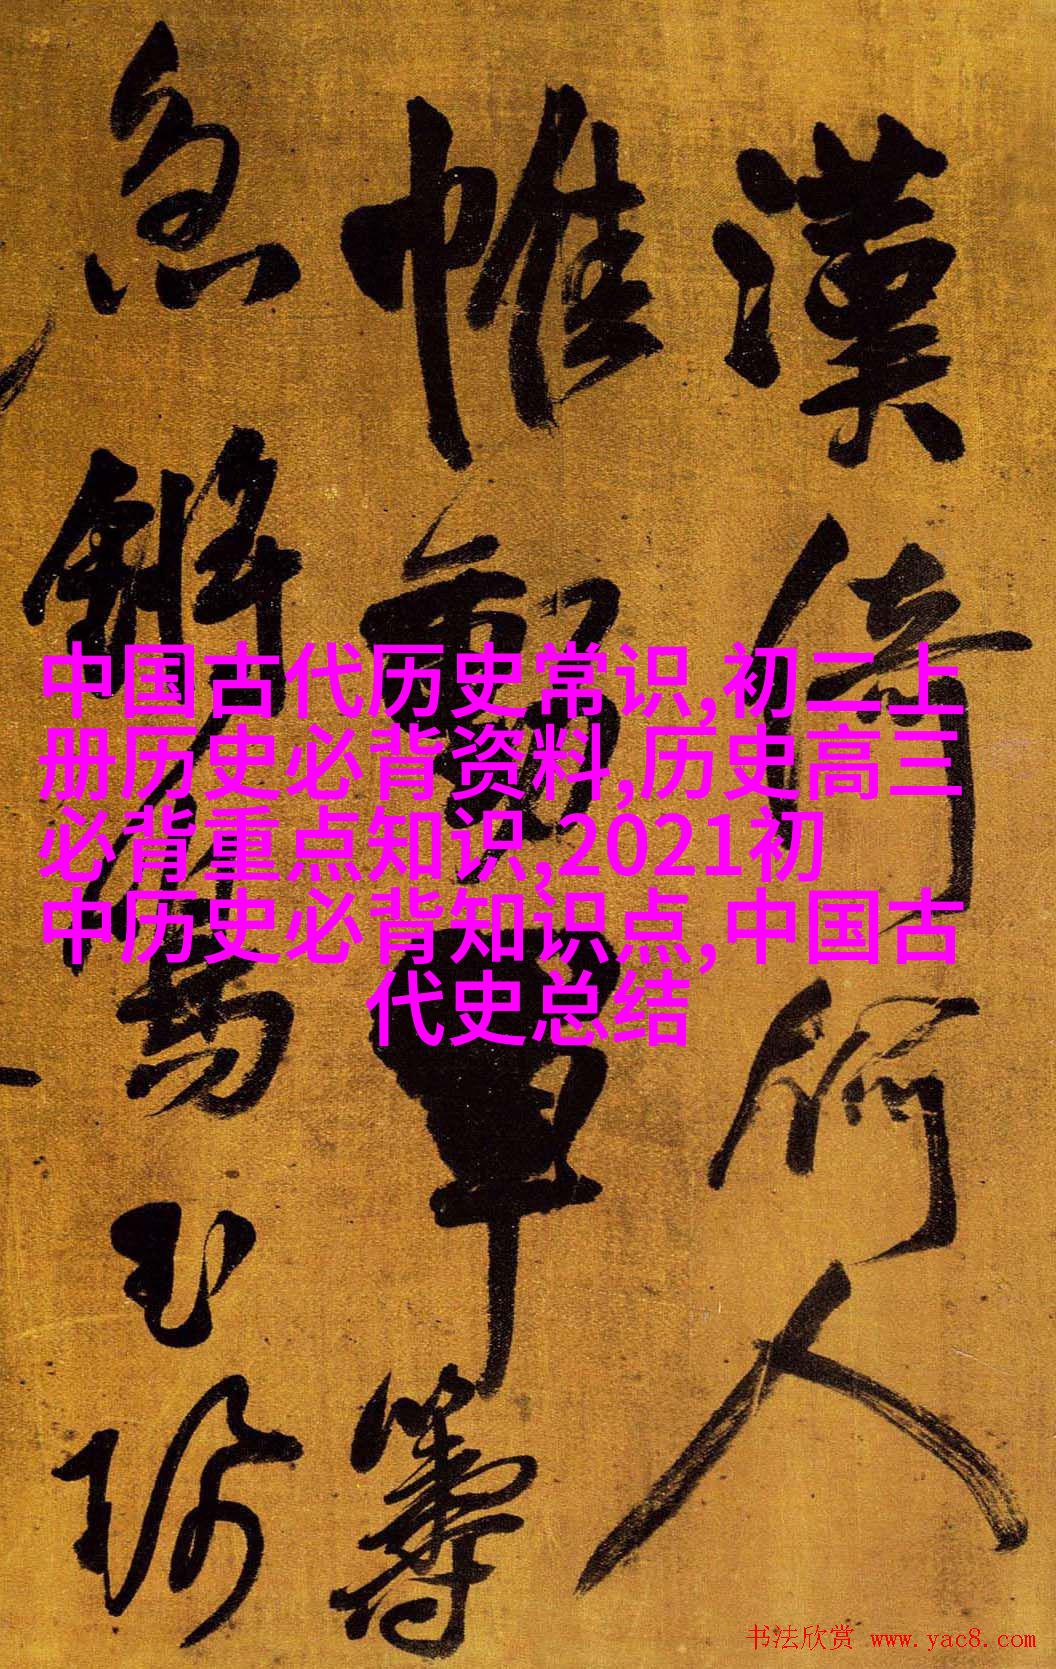 漢倚何人
帷 籌
玉
中国古代历史常识,初二上
册历史必背资料,历史高三
必背重点知识,2021初
中历史必背知识点,中国古
代史总结
书法欣赏 www.yac8.com